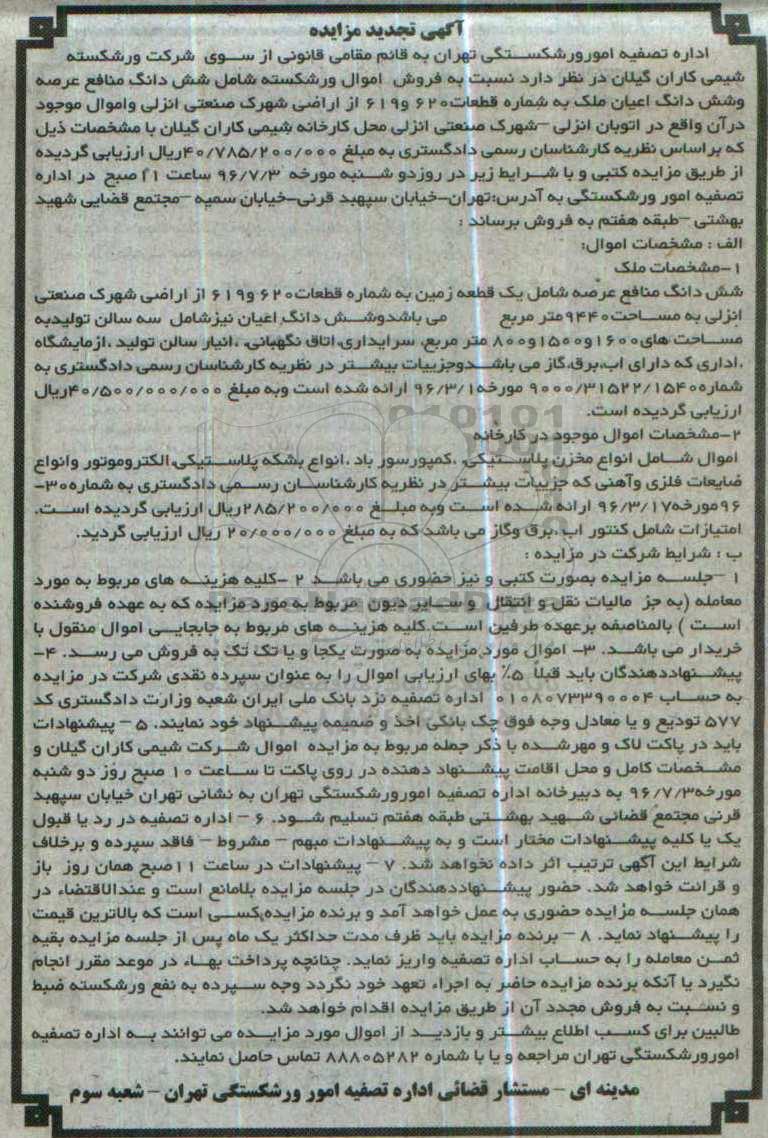 آگهی تجدید مزایده
اداره تصفیه امورورشکستگی تهران به قائم مقامی قانونی از سوی شرکت ورشکسته
شیمی کاران گیلان در نظر دارد نسبت به فروش اموال ورشکسته شامل شش دانگ منافع عرصه
وشش دانگ اعیان ملک به شماره قطعات۶۲۰ و۶۱۹ از اراضی شهرک صنعتی انزلی واموال موجود
درآن واقع در اتوبان انزلی –شهرک صنعتی انزلی محل کارخانه شیمی کاران گیلان با مشخصات ذیل
که براساس نظریه کارشناسان رسمی دادگستری به مبلغ ۴۰/۷۸۵/۲۰۰/۰۰۰ریال ارزیابی گردیده
از طریق مزایده کتبی و با شرایط زیر در روزدو شنبه مورخه ۹۶/۷/۳ ساعت ۱۱ صبح در اداره
تصفیه امور ورشکستگی به آدرس:تهران–خیابان سپهبد قرنی–خیابان سمیه –مجتمع قضایی شهید
بهشتی –طبقه هفتم به فروش برساند :
الف : مشخصات اموال:
۱–مشخصات ملک
شش دانگ منافع عرصه شامل یک قطعه زمین به شماره قطعات۶۲۰ و۶۱۹ از اراضی شهرک صنعتی
انزلی به مساحت۹۴۴۰متر مربع می باشدوشش دانگ اعیان نیزشامل سه سالن تولیدبه
مساحت های۱۶۰۰و۱۵۰۰و۸۰۰ متر مربع، سرایداری،اتاق نگهبانی، ،انبار سالن تولید ،ازمایشگاه
،اداری که دارای اب،برق،گاز می باشدوجزییات بیشتر در نظریه کارشناسان رسمی دادگستری به
شماره۹۰۰۰/۳۱۵۲۲/۱۵۴۰ مورخه۹۶/۳/۱ ارائه شده است وبه مبلغ ۴۰/۵۰۰/۰۰۰/۰۰۰ریال
ارزیابی گردیده است.
۲–مشخصات اموال موجود در کارخانه
اموال شامل انواع مخزن پلاستیکی، ،کمپورسور باد ،انواع بشکه پلاستیکی،الکتروموتور وانواع
ضایعات فلزی وآهنی که جزییات بیشتر در نظریه کارشناسان رسمی دادگستری به شماره۳۰–
۹۶مورخه۹۶/۳/۱۷ ارائه شده است وبه مبلغ ۲۸۵/۲۰۰/۰۰۰ریال ارزیابی گردیده است.
امتیازات شامل کنتور اب ،برق وگاز می باشد که به مبلغ ۲۰/۰۰۰/۰۰۰ ریال ارزیابی گردید.
ب : شرایط شرکت در مزایده :
۱ –جلسه مزایده بصورت کتبی و نیز حضوری می باشد ۲ –کلیه هزینه های مربوط به مورد
معامله (به جز مالیات نقل و انتقال و سایر دیون مربوط به مورد مزایده که به عهده فروشنده
است ) بالمناصفه برعهده طرفین است.کلیه هزینه های مربوط به جابجایی اموال منقول با
خریدار می باشد. ۳– اموال مورد مزایده به صورت یکجا و یا تک تک به فروش می رسد. ۴–
پیشنهاددهندگان باید قبلاً ۵٪ بهای ارزیابی اموال را به عنوان سپرده نقدی شرکت در مزایده
به حساب ۰۱۰۸۰۷۳۳۹۰۰۰۴ اداره تصفیه نزد بانک ملی ایران شعبه وزارت دادگستری کد
۵۷۷ تودیع و یا معادل وجه فوق چک بانکی اخذ و ضمیمه پیشنهاد خود نمایند. ۵ – پیشنهادات
باید در پاکت لاک و مهرشده با ذکر جمله مربوط به مزایده اموال شرکت شیمی کاران گیلان و
مشخصات کامل و محل اقامت پیشنهاد دهنده در روی پاکت تا ساعت ۱۰ صبح روز دو شنبه
مورخه۹۶/۷/۳ به دبیرخانه اداره تصفیه امورورشکستگی تهران به نشانی تهران خیابان سپهبد
قرنی مجتمع قضائی شهید بهشتی طبقه هفتم تسلیم شود. ۶ – اداره تصفیه در رد یا قبول
یک یا کلیه پیشنهادات مختار است و به پیشنهادات مبهم – مشروط – فاقد سپرده و برخلاف
شرایط این آگهی ترتیب اثر داده نخواهد شد. ۷ – پیشنهادات در ساعت ۱۱صبح همان روز باز
و قرائت خواهد شد. حضور پیشنهاددهندگان در جلسه مزایده بلامانع است و عندالاقتضاء در
همان جلسه مزایده حضوری به عمل خواهد آمد و برنده مزایده،کسی است که بالاترین قیمت
را پیشنهاد نماید. ۸ – برنده مزایده باید ظرف مدت حداکثر یک ماه پس از جلسه مزایده بقیه
ثمن معامله را به حساب اداره تصفیه واریز نماید. چنانچه پرداخت بهاء در موعد مقرر انجام
نگیرد یا آنکه برنده مزایده حاضر به اجراء تعهد خود نگردد وجه سپرده به نفع ورشکسته ضبط
و نسبت به فروش مجدد آن از طریق مزایده اقدام خواهد شد.
طالبین برای کسب اطلاع بیشتر و بازدید از اموال مورد مزایده می توانند به اداره تصفیه
امورورشکستگی تهران مراجعه و یا با شماره ۸۸۸۰۵۲۸۲ تماس حاصل نمایند.
مدینه ای – مستشار قضائی اداره تصفیه امور ورشکستگی تهران – شعبه سوم